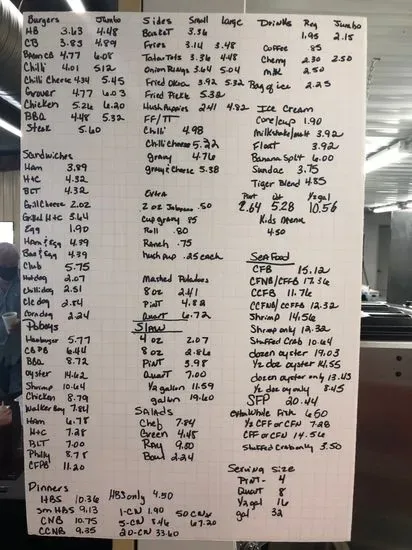 Burgers Jumbo
HB 3.63 4.48
CB 3.83 4.89
Bacon CB 4.77 6.08
Chilli 4.01 5.12
Chilli Cheese 4.34 5.45
Grover 4.77 6.03
Chicken 5.26 6.20
BBQ 4.48 5.32
Steak 5.60
Sandwiches
Ham 3.89
H+C 4.32
BLT 4.32
Grill Cheese 2.02
Grilled H+C 5.64
Egg 1.90
Ham & Egg 4.39
Bac & Egg 4.39
Club 5.75
Hotdog 2.07
Chillidog 2.51
Cledog 2.84
Corndog 2.24
Poboys
Hamburger 5.77
CB PB 6.44
BBQ 8.72
oyster 14.62
Shrimp 10.64
Chicken 8.79
Walker Boy 7.84
Ham 6.78
H+C 7.28
BLT 7.00
Philly 8.78
CFPB 11.20
Dinners
HBS 10.36 HBS only 4.50
sm HBS 9.13
CNB 10.75
CCNB 9.35
1-CN 1.90
5-CN 8.46
20-CN 33.60
50 CNs
67.20
Sides Small Large
Basket 3.36
Fries 3.14 3.48
Tator Tots 3.36 4.48
Onion Rings 3.64 5.04
Fried Okra 3.92 5.32
Fried Pickle 5.32
Hush Puppies 2.41 4.82
FF/TT
Chilli 4.98
Chilli Cheese 5.22
gravy 4.76
gravy & Cheese 5.38
Extra
2 oz Jalapeno .50
Cup gravy 85
Roll .80
Ranch .75
hush pup .25 each
Mashed Potatoes
8 oz 2.41
Pint 4.82
Quart 6.72
Slaw
4 oz 2.07
8 oz 2.86
Pint 3.98
Quart 7.00
1/2 gallon 11.59
gallon 19.60
Salads
Chef 7.84
Green 4.48
Ray 9.80
Bowl 2.24
Drinks Reg Jumbo
1.95 2.15
Coffee .85
Cherry 2.30 2.50
Milk 2.50
Bag of ice 2.25
Ice Cream
Cone/cup 1.90
Milkshake/malt 3.92
Float 3.92
Banana Split 6.00
Sundae 3.75
Tiger Blend 4.85
Pint Qt 1/2 gal
2.64 5.28 10.56
Kids Menu
4.50
Seafood
CFB 15.12
CFNB/CFFB 17.36
CCFB 11.76
CCFNB/CCFFB 12.32
Shrimp 14.56
Shrimp only 12.32
Stuffed Crab 10.64
dozen oyster 19.03
1/2 doz oyster 14.55
dozen oyster only 13.43
1/2 doz oy only 8.45
SFP 20.44
extra Whole Fish 6.60
1/2 CFF or CFN 7.28
CFF or CFN 14.56
Stuffed Crab only 3.50
Serving size
Pint - 4
Quart 8
1/2 gal 16
gal 32